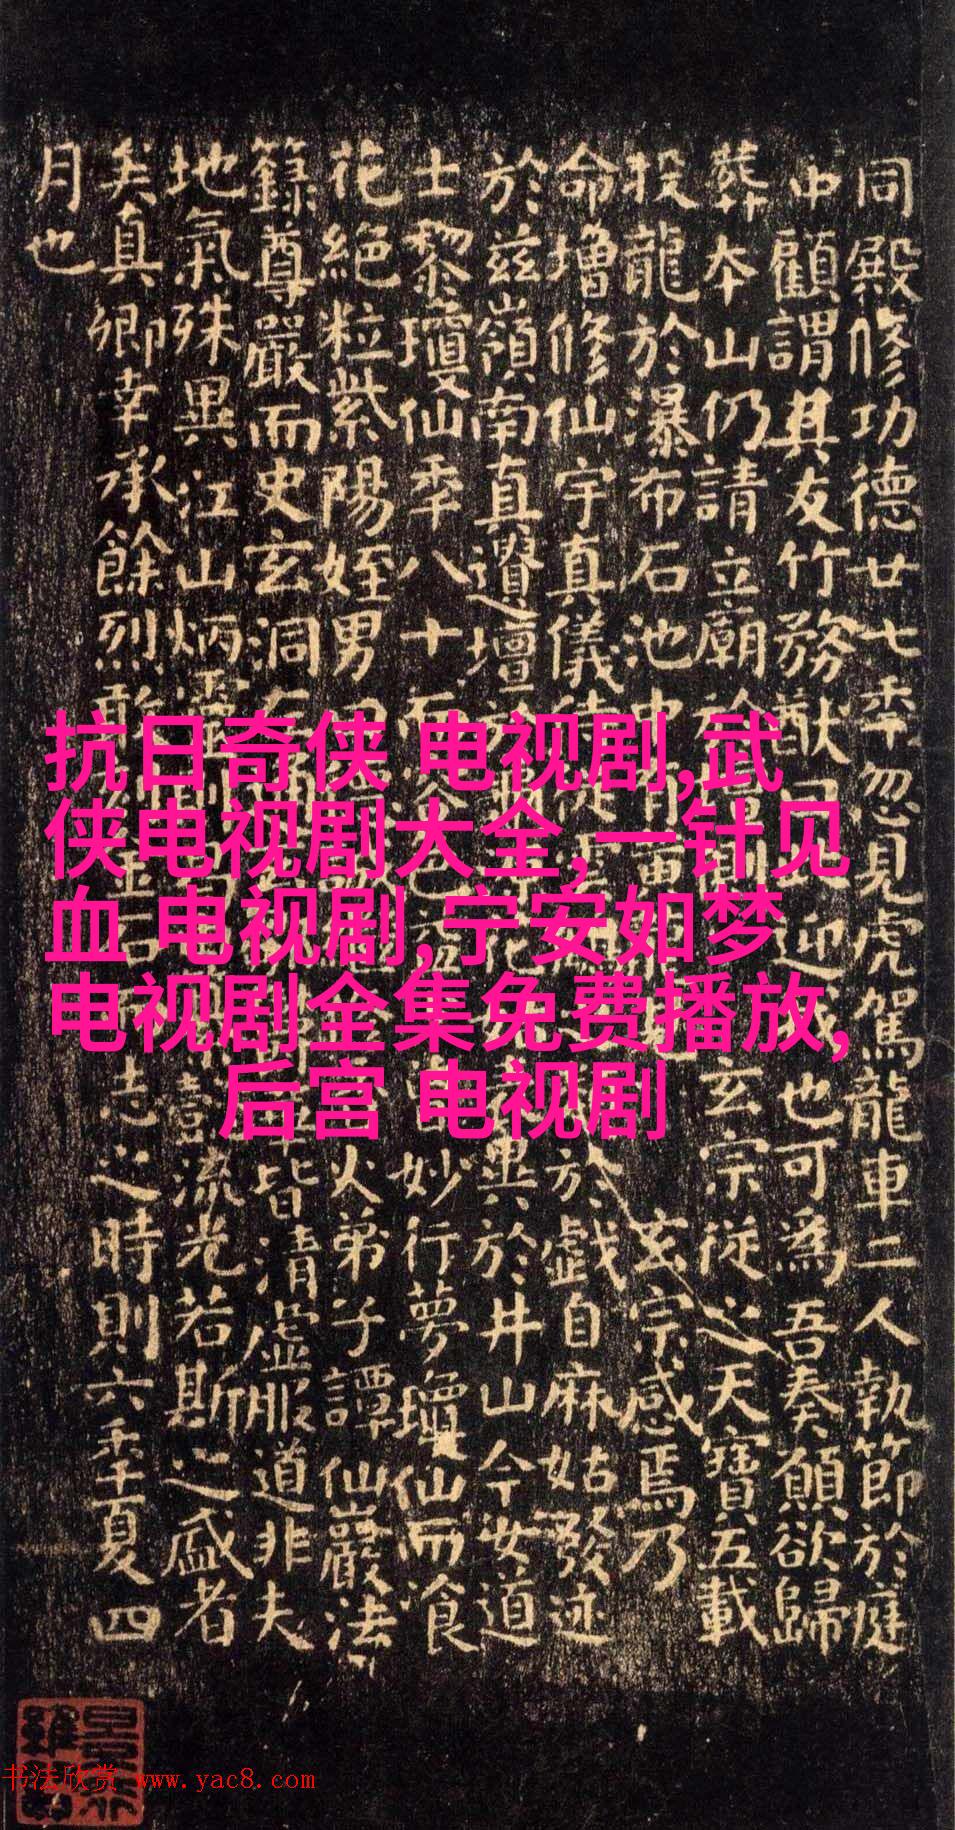 同殿修功德廿七秊忽見虎駕龍車二人執節於庭
中顧謂其友竹務猷曰此迎我也可為吾奏願欲歸
葬本山仍請立廟於壇側玄宗從之天寶五載
投龍於瀑布石池中玄宗感焉乃
命增修仙宇真儀侍從於戲自麻姑發迹
於茲嶺南真遺壇於異於井山今女道
士黎瓊仙秊八十而容色益妙行夢瓊仙而飡
花絕粒紫陽姪男曰火弟子譚仙巖法
籙尊嚴而史玄洞左皆清虛服道非夫
地氣殊異江山炳靈則懿流光若斯之盛者
矣真卿幸承餘烈敢金石志之時則六秊夏四
月也
抗日奇侠 电视剧,武
侠电视剧大全,一针见
血 电视剧,宁安如梦
电视剧全集免费播放,
后宫 电视剧
书法欣赏 www.yac8.com